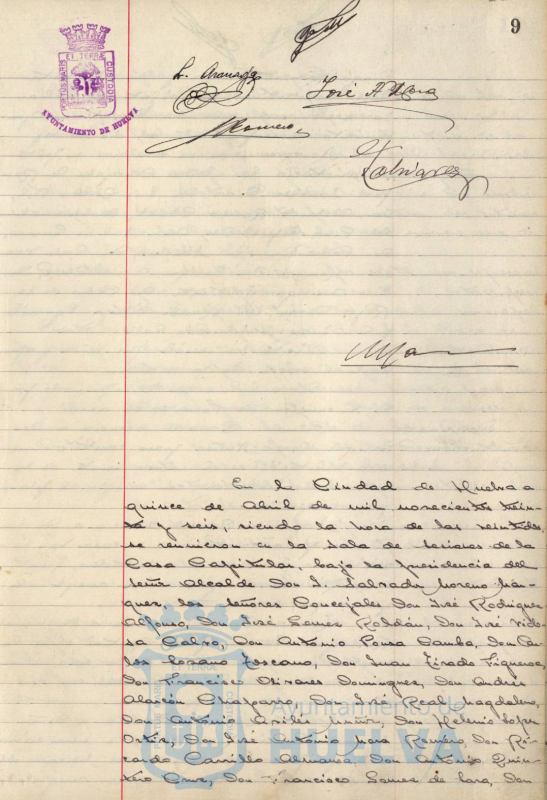 9
PORTUS MARIS ET TERRÆ CUSTODIA
AYUNTAMIENTO DE HUELVA
L. Aranaga
José A. Mora
J Romero
F Olivares
En la Ciudad de Huelva a
quince de Abril de mil novecientos trein-
ta y seis, siendo la hora de las veintidos,
se reunieron en la Sala de Sesiones de la
Casa Capitular, bajo la presidencia del
señor Alcalde Don J. Salvador Moreno Már-
quez, los señores Concejales Don José Rodriguez
Alfonso, Don José Gomez Roldán, Don José Victo-
Calvo, Don Antonio Ponsa Don Car-
los Lozano Toscano, Don Juan Tirado Figueroa,
Don Francisco Olivares Dominguez, Don Andrés
Alarcón Chaparro, Don José Real Magdaleno,
Don Antonio Don Helenio Lopez
Ortiz, Don José Antonio Mora Romero, Don Ri-
cardo Carrillo Almansa, Don Antonio Quin-
tero Cruz, Don Francisco Gomez de Lara, Don
Ayuntamiento de
HUELVA